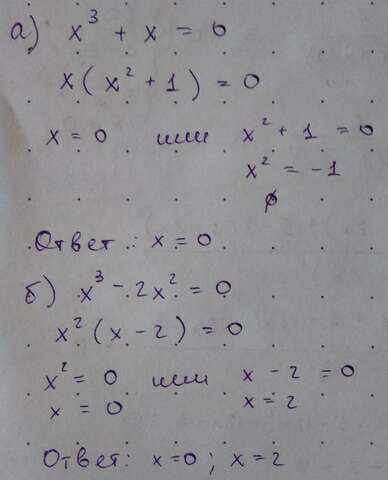 а) x³ + x = 0
x(x² + 1) = 0
x = 0 или x² + 1 = 0
x² = -1
∅
Ответ: x = 0
б) x³ - 2x² = 0
x²(x - 2) = 0
x² = 0 или x - 2 = 0
x = 0 x = 2
Ответ: x=0; x=2